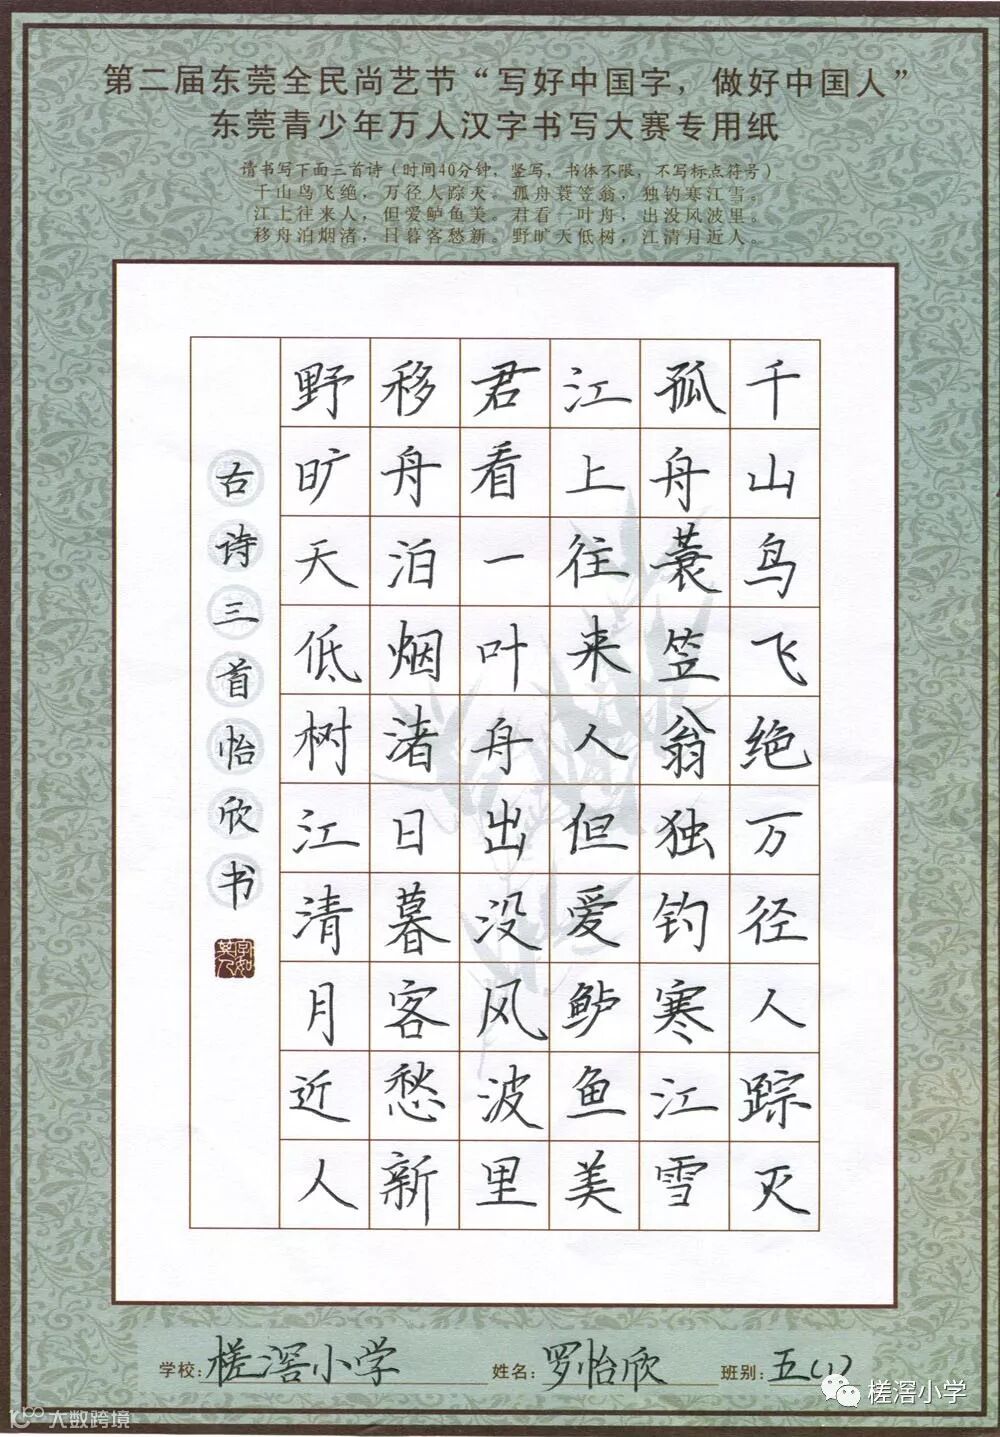 第二届东莞全民尚艺节“写好中国字，做好中国人”
东莞青少年万人汉字书写大赛专用纸
请书写下面三首诗（时间40分钟，竖写，书体不限，不写标点符号）
千山鸟飞绝，万径人踪灭。孤舟蓑笠翁，独钓寒江雪。
江上往来人，但爱鲈鱼美。君看一叶舟，出没风波里。
移舟泊烟渚，日暮客愁新。野旷天低树，江清月近人。
千山鸟飞绝万径人踪灭
孤舟蓑笠翁独钓寒江雪
江上往来人但爱鲈鱼美
君看一叶舟出没风波里
移舟泊烟渚日暮客愁新
野旷天低树江清月近人
古诗三首怡欣书
字如其人
学校：槎滘小学 姓名：罗怡欣 班别：五（1）
槎滘小学
大数跨境